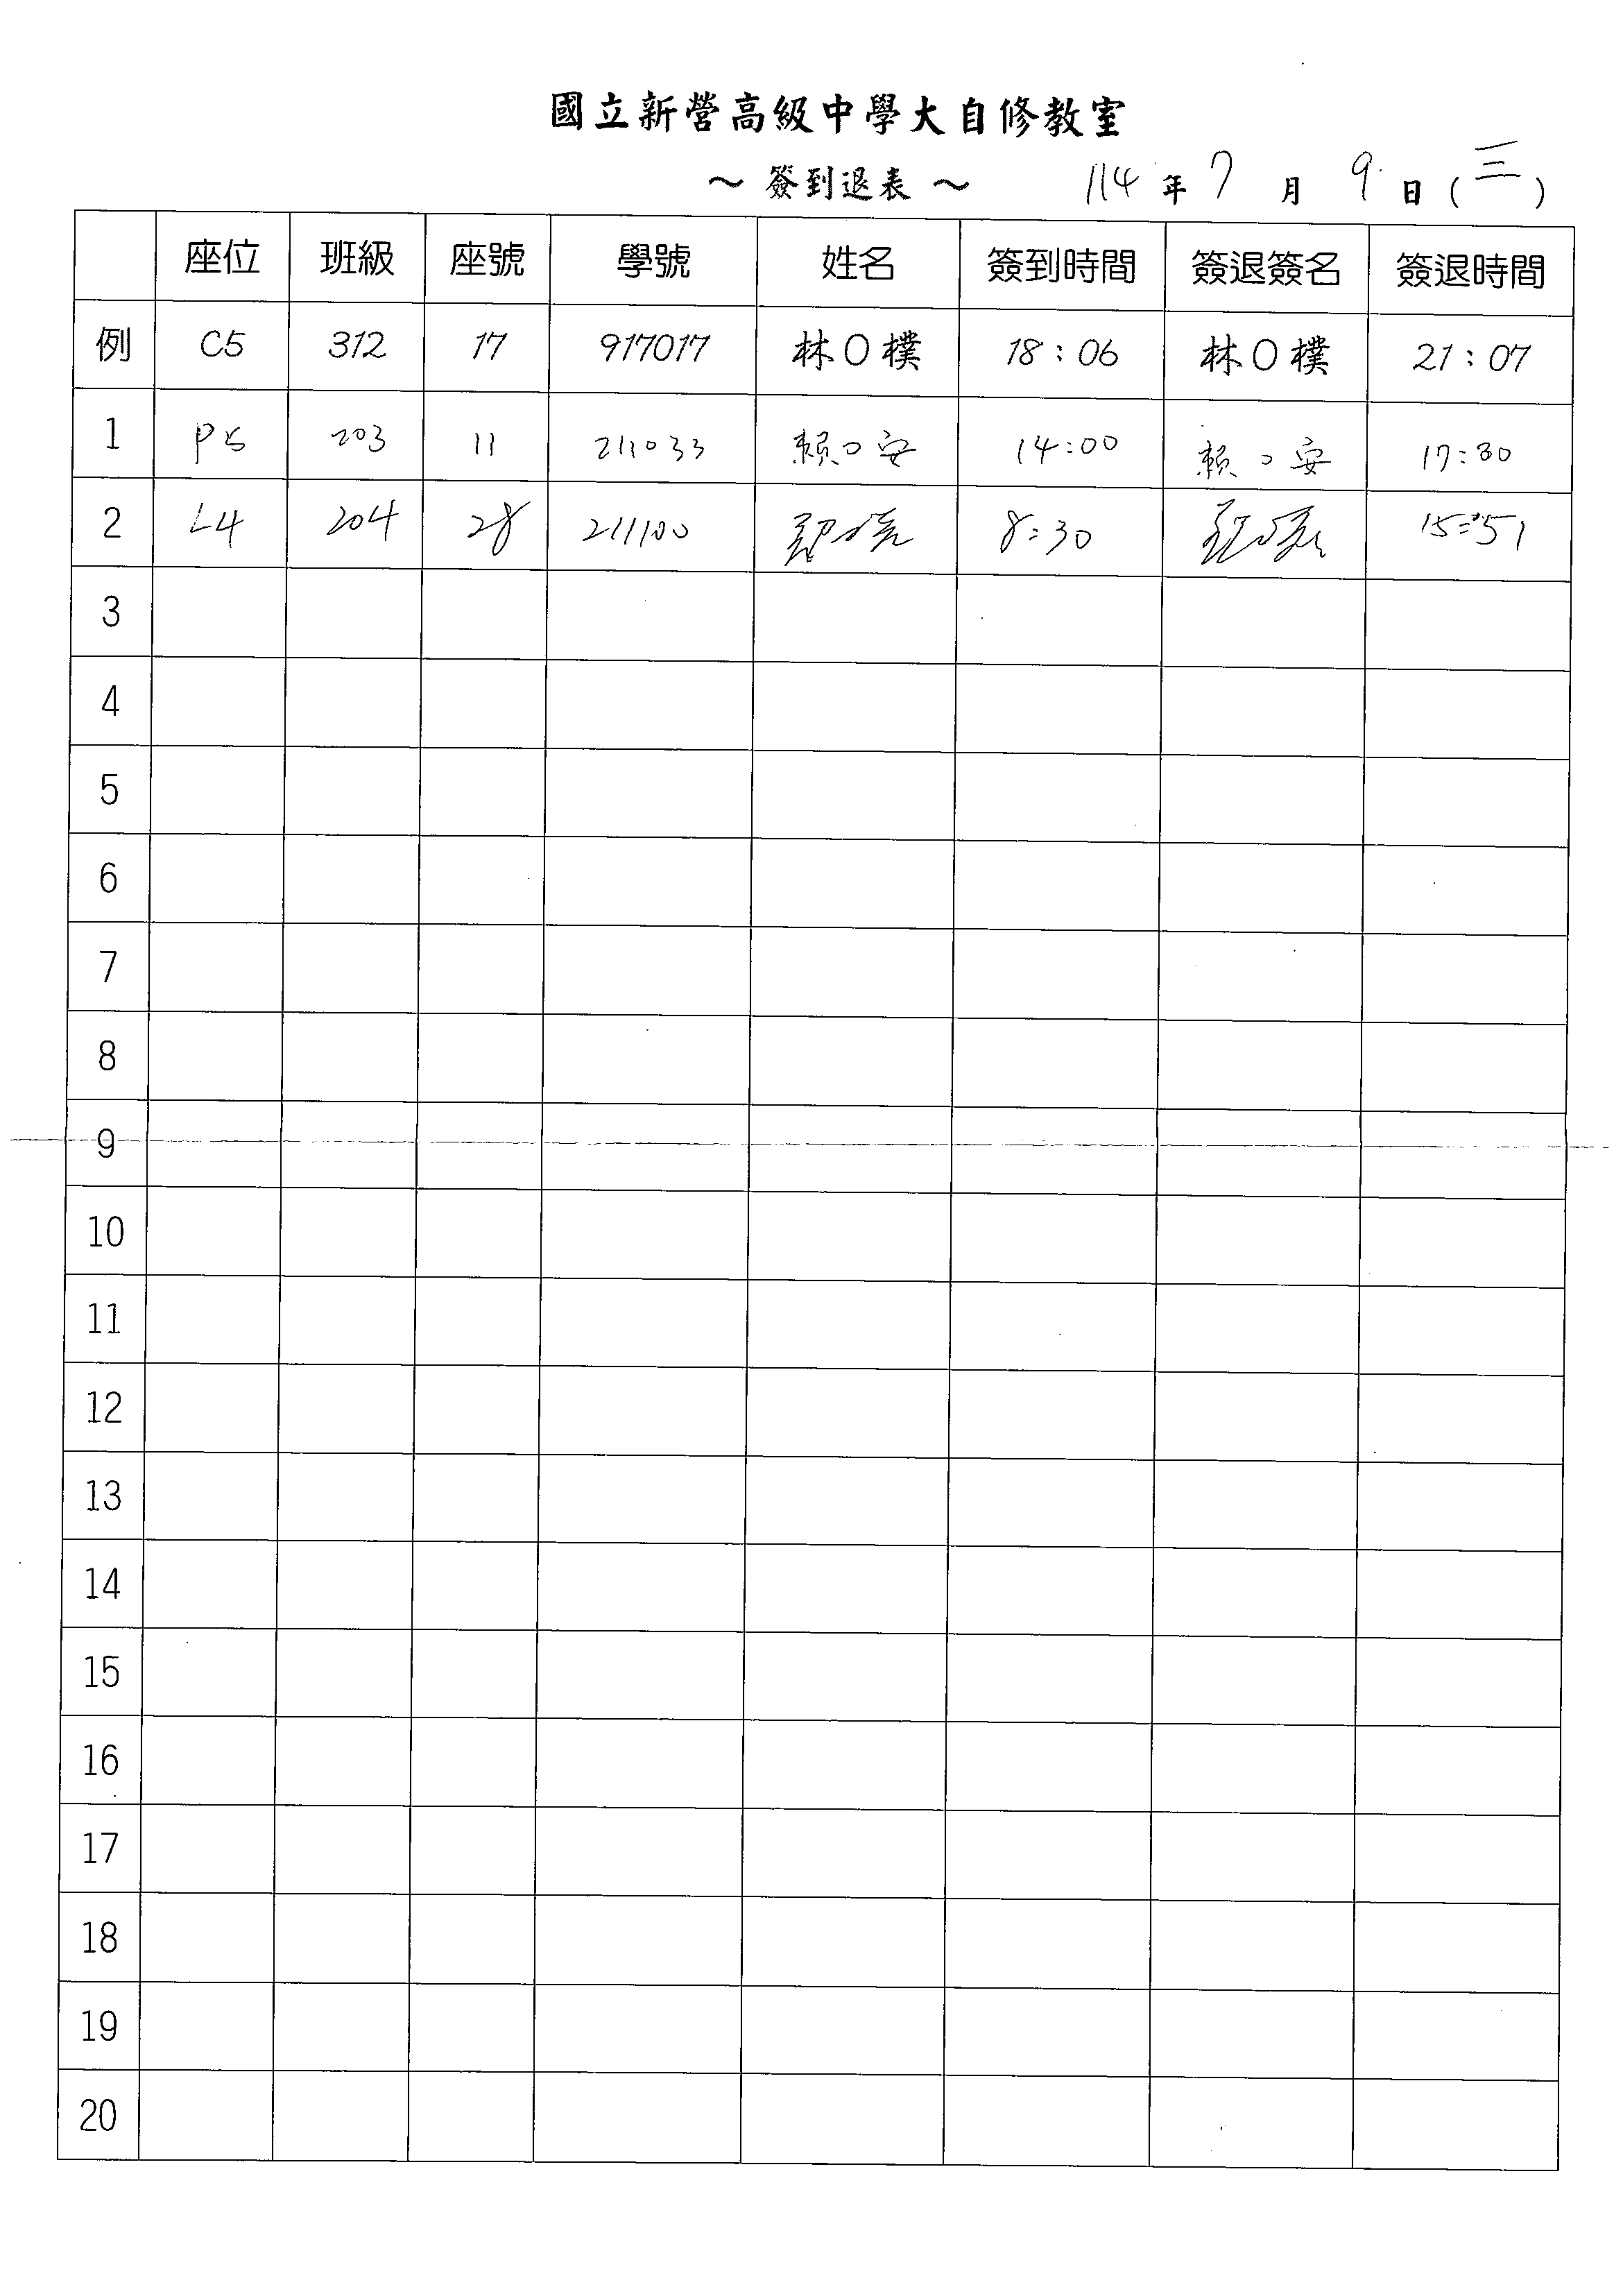 國立新營高級中學大自修教室
～ 簽到退表 ～ 114 年 7 月 9 日 ( 三 )
座位 班級 座號 學號 姓名 簽到時間 簽退簽名 簽退時間
例 C5 312 17 917017 林O樸 18:06 林O樸 21:07
1 P5 203 11 211033 賴O安 14:00 賴O安 17:30
2 L4 204 28 211100 8:30 15:51
3
4
5
6
7
8
9
10
11
12
13
14
15
16
17
18
19
20